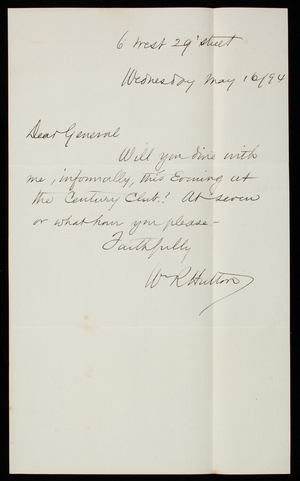 6 West 29' Street
Wednesday May 16/94
Dear General
Will you dine with
me, informally, this Evening at
the Century Club? At seven
or what hour you please -
Faithfully
Wm R Hutton